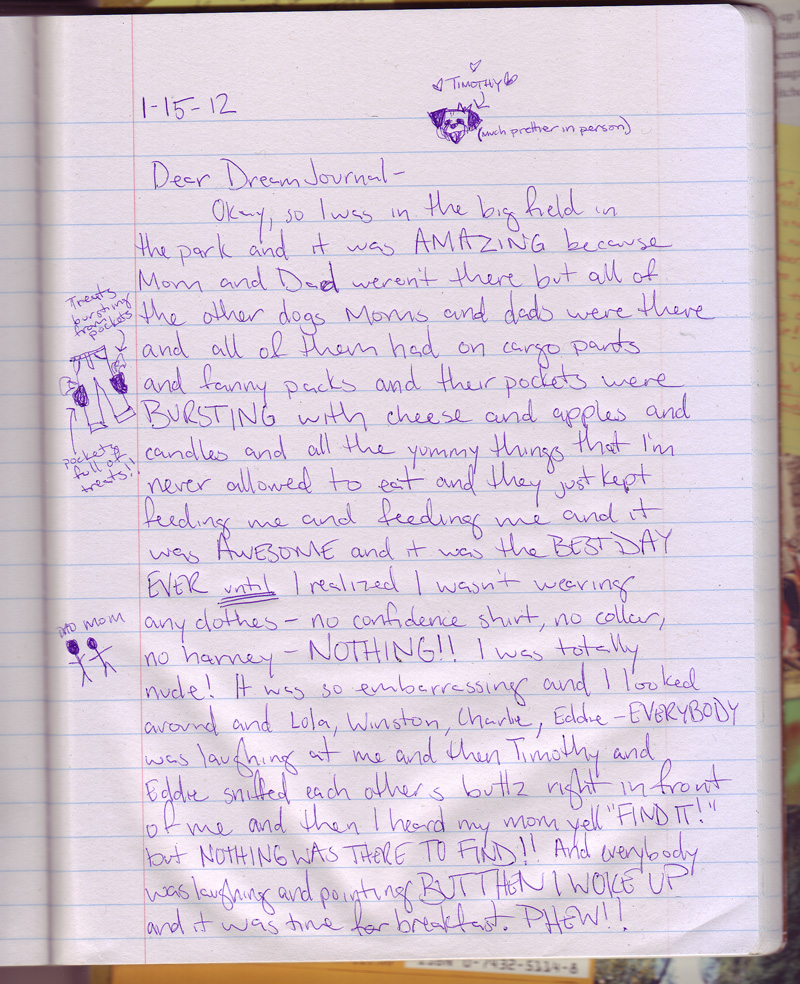 1-15-12
TIMOTHY
(much prettier in person)
Dear Dream Journal-
Okay, so I was in the big field in
the park and it was AMAZING because
Mom and Dad weren't there but all of
the other dogs Moms and dads were there
and all of them had on cargo pants
and fanny packs and their pockets were
BURSTING with cheese and apples and
candles and all the yummy things that I'm
never allowed to eat and they just kept
feeding me and feeding me and it
was AWESOME and it was the BEST DAY
EVER until I realized I wasn't wearing
any clothes - no confidence shirt, no collar,
no harney - NOTHING!! I was totally
nude! It was so embarrassing and I looked
around and Lola, Winston, Charlie, Eddie - EVERYBODY
was laughing at me and then Timothy and
Eddie sniffed each other's buttz right in front
of me and then I heard my mom yell "FIND IT!"
but NOTHING WAS THERE TO FIND!! And everybody
was laughing and pointing BUT THEN I WOKE UP
and it was time for breakfast. PHEW!!
Treats
bursting
from
pockets
pockets
full of
treats!!
mom
0-7432-5114-8